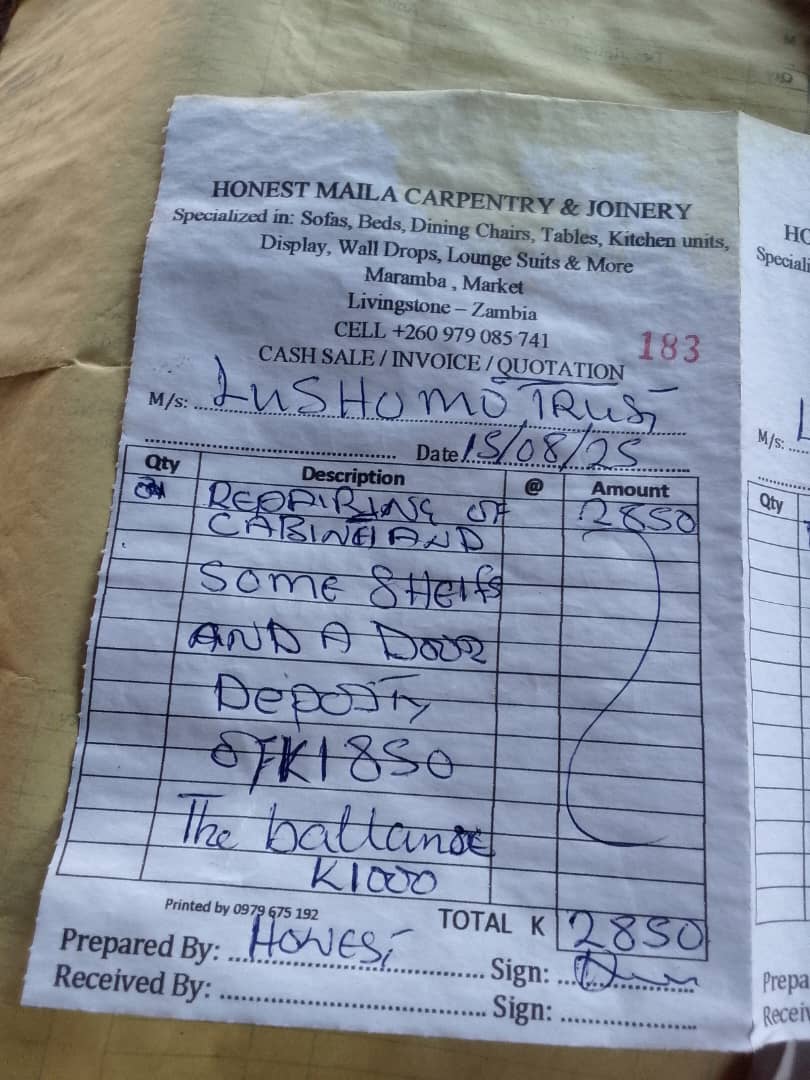 HONEST MAILA CARPENTRY & JOINERY
Specialized in: Sofas, Beds, Dining Chairs, Tables, Kitchen units,
Display, Wall Drops, Lounge Suits & More
Maramba , Market
Livingstone – Zambia
CELL +260 979 085 741
183
CASH SALE / INVOICE / QUOTATION
M/s: LUSHOMO TRUST
Date 15/08/25
Qty Description @ Amount
REPAIRING OF 2850
CABINET AND
SOME SHElfs
AND A DOOR
DepOSIT
OF K1850
The battanse
K1000
Printed by 0979 675 192
TOTAL K 2850
Prepared By: HONEST Sign:
Received By: Sign:
HO
Speciali
M/s: L
Qty
Prepa
Receiv